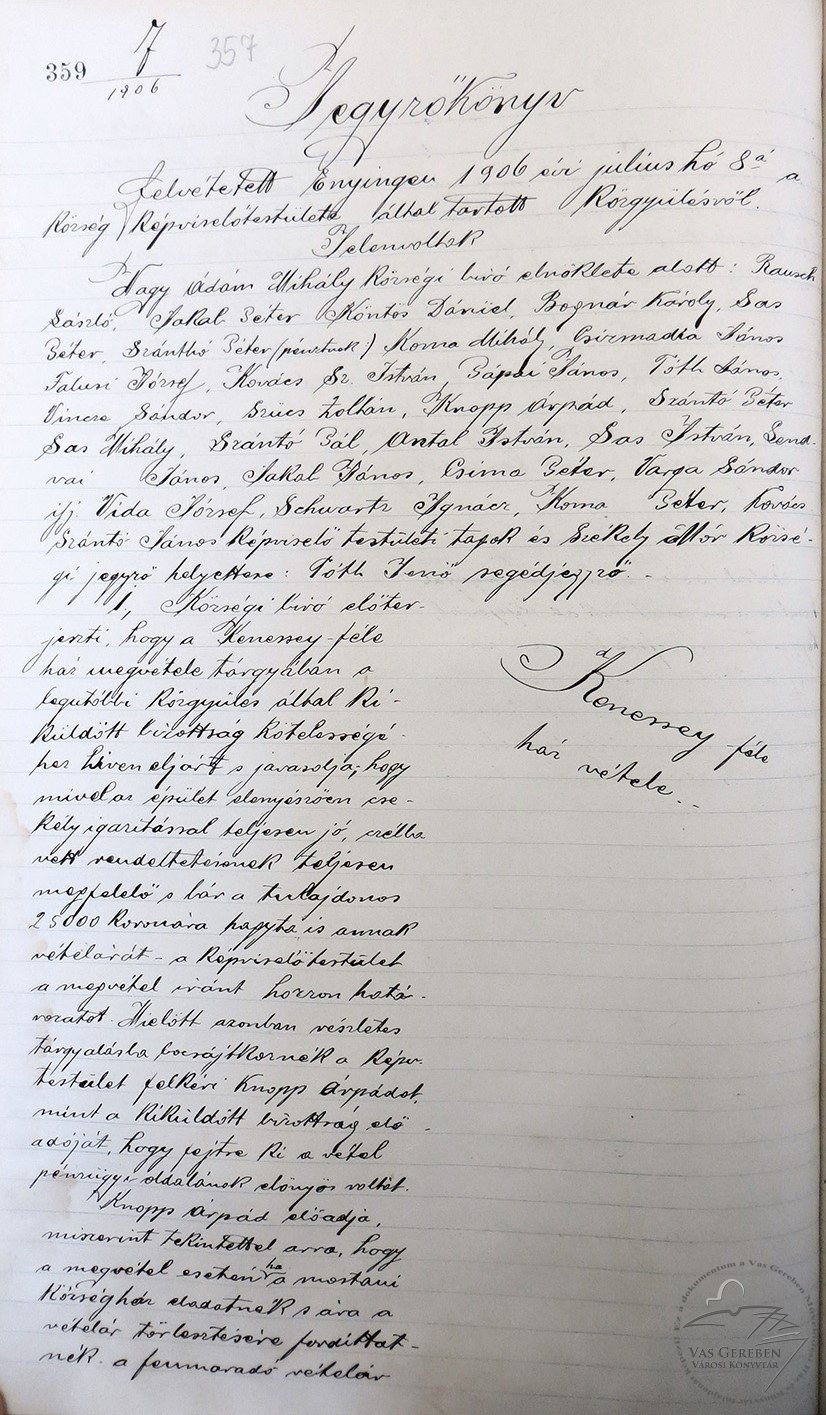 359 7/1906 357
Jegyzőkönyv
felvétetett Enyingen 1906 évi július hó 8á a
község képviselőtestülete által tartott közgyülésről.
Jelenvoltak
Nagy Ádám Mihály községi biró elnöklete alatt: Rausch
László, Jakal Péter Köntös Dániel, Bognár Károly, Sas
Péter, Szánthó Péter (pénztnok) Koma Mihály, Csizmadia János
Falusi József, Kovács Sz. István, Pápai János, Tóth János,
Vincze Sándor, Szücs Zoltán, Knopp Árpád, Szántó Péter
Sas Mihály, Szántó Pál, Antal István, Sas István, Send-
vai János, Jakal János, Csima Péter, Varga Sándor
ifj. Vida József, Schwartz Ignácz, Koma Péter, Kovács
Szántó János képviselő testületi tagok és Székely Mór közsé-
gi jegyző helyettese: Tóth Jenő segédjegyző.
1, Községi biró előter-
jeszti, hogy a Kenessey-féle
ház megvétele tárgyában a
legutóbbi közgyülés által ki-
küldött bizottság kötelességé-
hez hiven eljárt s javasolja, hogy
mivel az épület elenyészően cse-
kély igazitással teljesen jó, czélba
vett rendeltetésének teljesen
megfelelő s bár a tulajdonos
25000 koronára hagyta is annak
vételárát - a képviselőtestület
a megvétel iránt hozzon hatá-
rozatot. Mielőtt azonban részletes
tárgyalásba bocsájtkoznék a képv.
testület felkéri Knopp Árpádot,
mint a kiküldött bizottság elő-
adóját, hogy fejtse ki a vétel
pénzügyi oldalának előnyös voltát.
Knopp Árpád előadja,
miszerint tekintettel arra, hogy
a megvétel esetén ha a mostani
községház eladatnék s ára a
vételár törlesztésére fordittat-
nék a fennmaradó vételár
Kenessey-féle
ház vétele.
VAS GEREBEN
VÁROSI KÖNYVTÁR